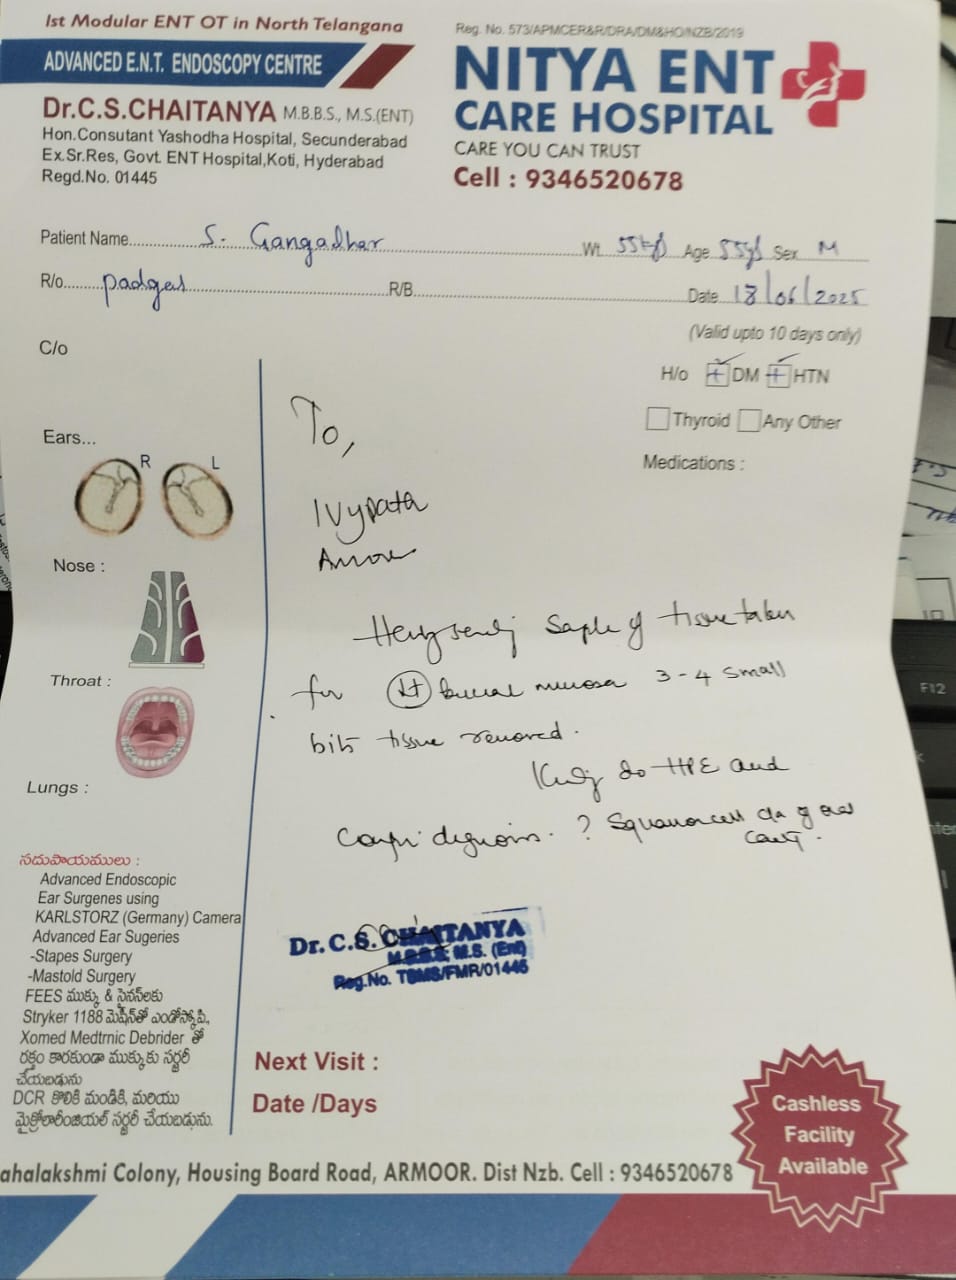 1st Modular ENT OT in North Telangana
ADVANCED E.N.T. ENDOSCOPY CENTRE
Dr.C.S.CHAITANYA M.B.B.S., M.S.(ENT)
Hon.Consutant Yashodha Hospital, Secunderabad
Ex.Sr.Res, Govt. ENT Hospital,Koti, Hyderabad
Regd.No. 01445
Reg. No. 573/APMCER&R/DRA/DM&HO/NZB/2019
NITYA ENT
CARE HOSPITAL
CARE YOU CAN TRUST
Cell : 9346520678
Patient Name S. Gangadhar Wt. 55kg Age 55ys Sex M
R/o padgal R/B Date 18/06/2025
(Valid upto 10 days only)
C/o
H/o + DM + HTN
Thyroid Any Other
Medications :
To,
Ears...
R L
Ivypath
Nose :
Hereby sending Sample of tissue taken
Throat :
for Lt buccal mucosa 3-4 small
bits tissue removed.
Lungs :
Kindly do HPE and
? Squamous cell Ca of oral
cavity.
సదుపాయములు :
Advanced Endoscopic
Ear Surgenes using
KARLSTORZ (Germany) Camera
Advanced Ear Sugeries
-Stapes Surgery
-Mastold Surgery
FEES ముక్కు & సైనస్‌లకు
Stryker 1188 మెషీన్‌తో ఎండోస్కోపి,
Xomed Medtrnic Debrider తో
రక్తం కారకుండా ముక్కుకు సర్జరీ
చేయబడును
DCR కొలికి మండికి, మరియు
మైక్రోలారింజియల్ సర్జరీ చేయబడును.
Dr. C.S. CHAITANYA
M.B.B.S, M.S. (Ent)
Reg.No. TSMS/FMR/01445
Next Visit :
Date /Days
Cashless
Facility
Available
ahalakshmi Colony, Housing Board Road, ARMOOR. Dist Nzb. Cell : 9346520678
F12